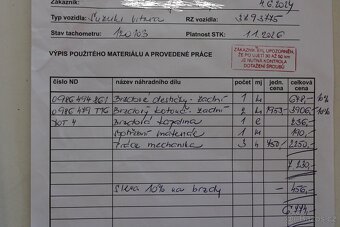 Zákazník: 4.6.2024
Typ vozidla: Suzuki Vitara RZ vozidla:
Stav tachometru: Platnost STK: 1.1.2026
VÝPIS POUŽITÉHO MATERIÁLU A PROVEDENÉ PRÁCE
ZÁKAZNÍK BYL UPOZORNĚN,
ŽE PO UJETÍ 30 AŽ 50 KM
JE NUTNÁ KONTROLA
DOTAŽENÍ ŠROUBŮ
číslo ND název náhradního dílu počet mj jedn. cena celková cena
Brzdové destičky - zadní 1 10%
Brzdový kotouč - zadní 2 1953 3906,- 10%
DOT 4 Brzdová kapalina 1 236,-
Spotřební materiál 190,-
Práce mechanika 3 h 750 2250,-
7 230,-
Sleva 10% na brzdy - 456,-